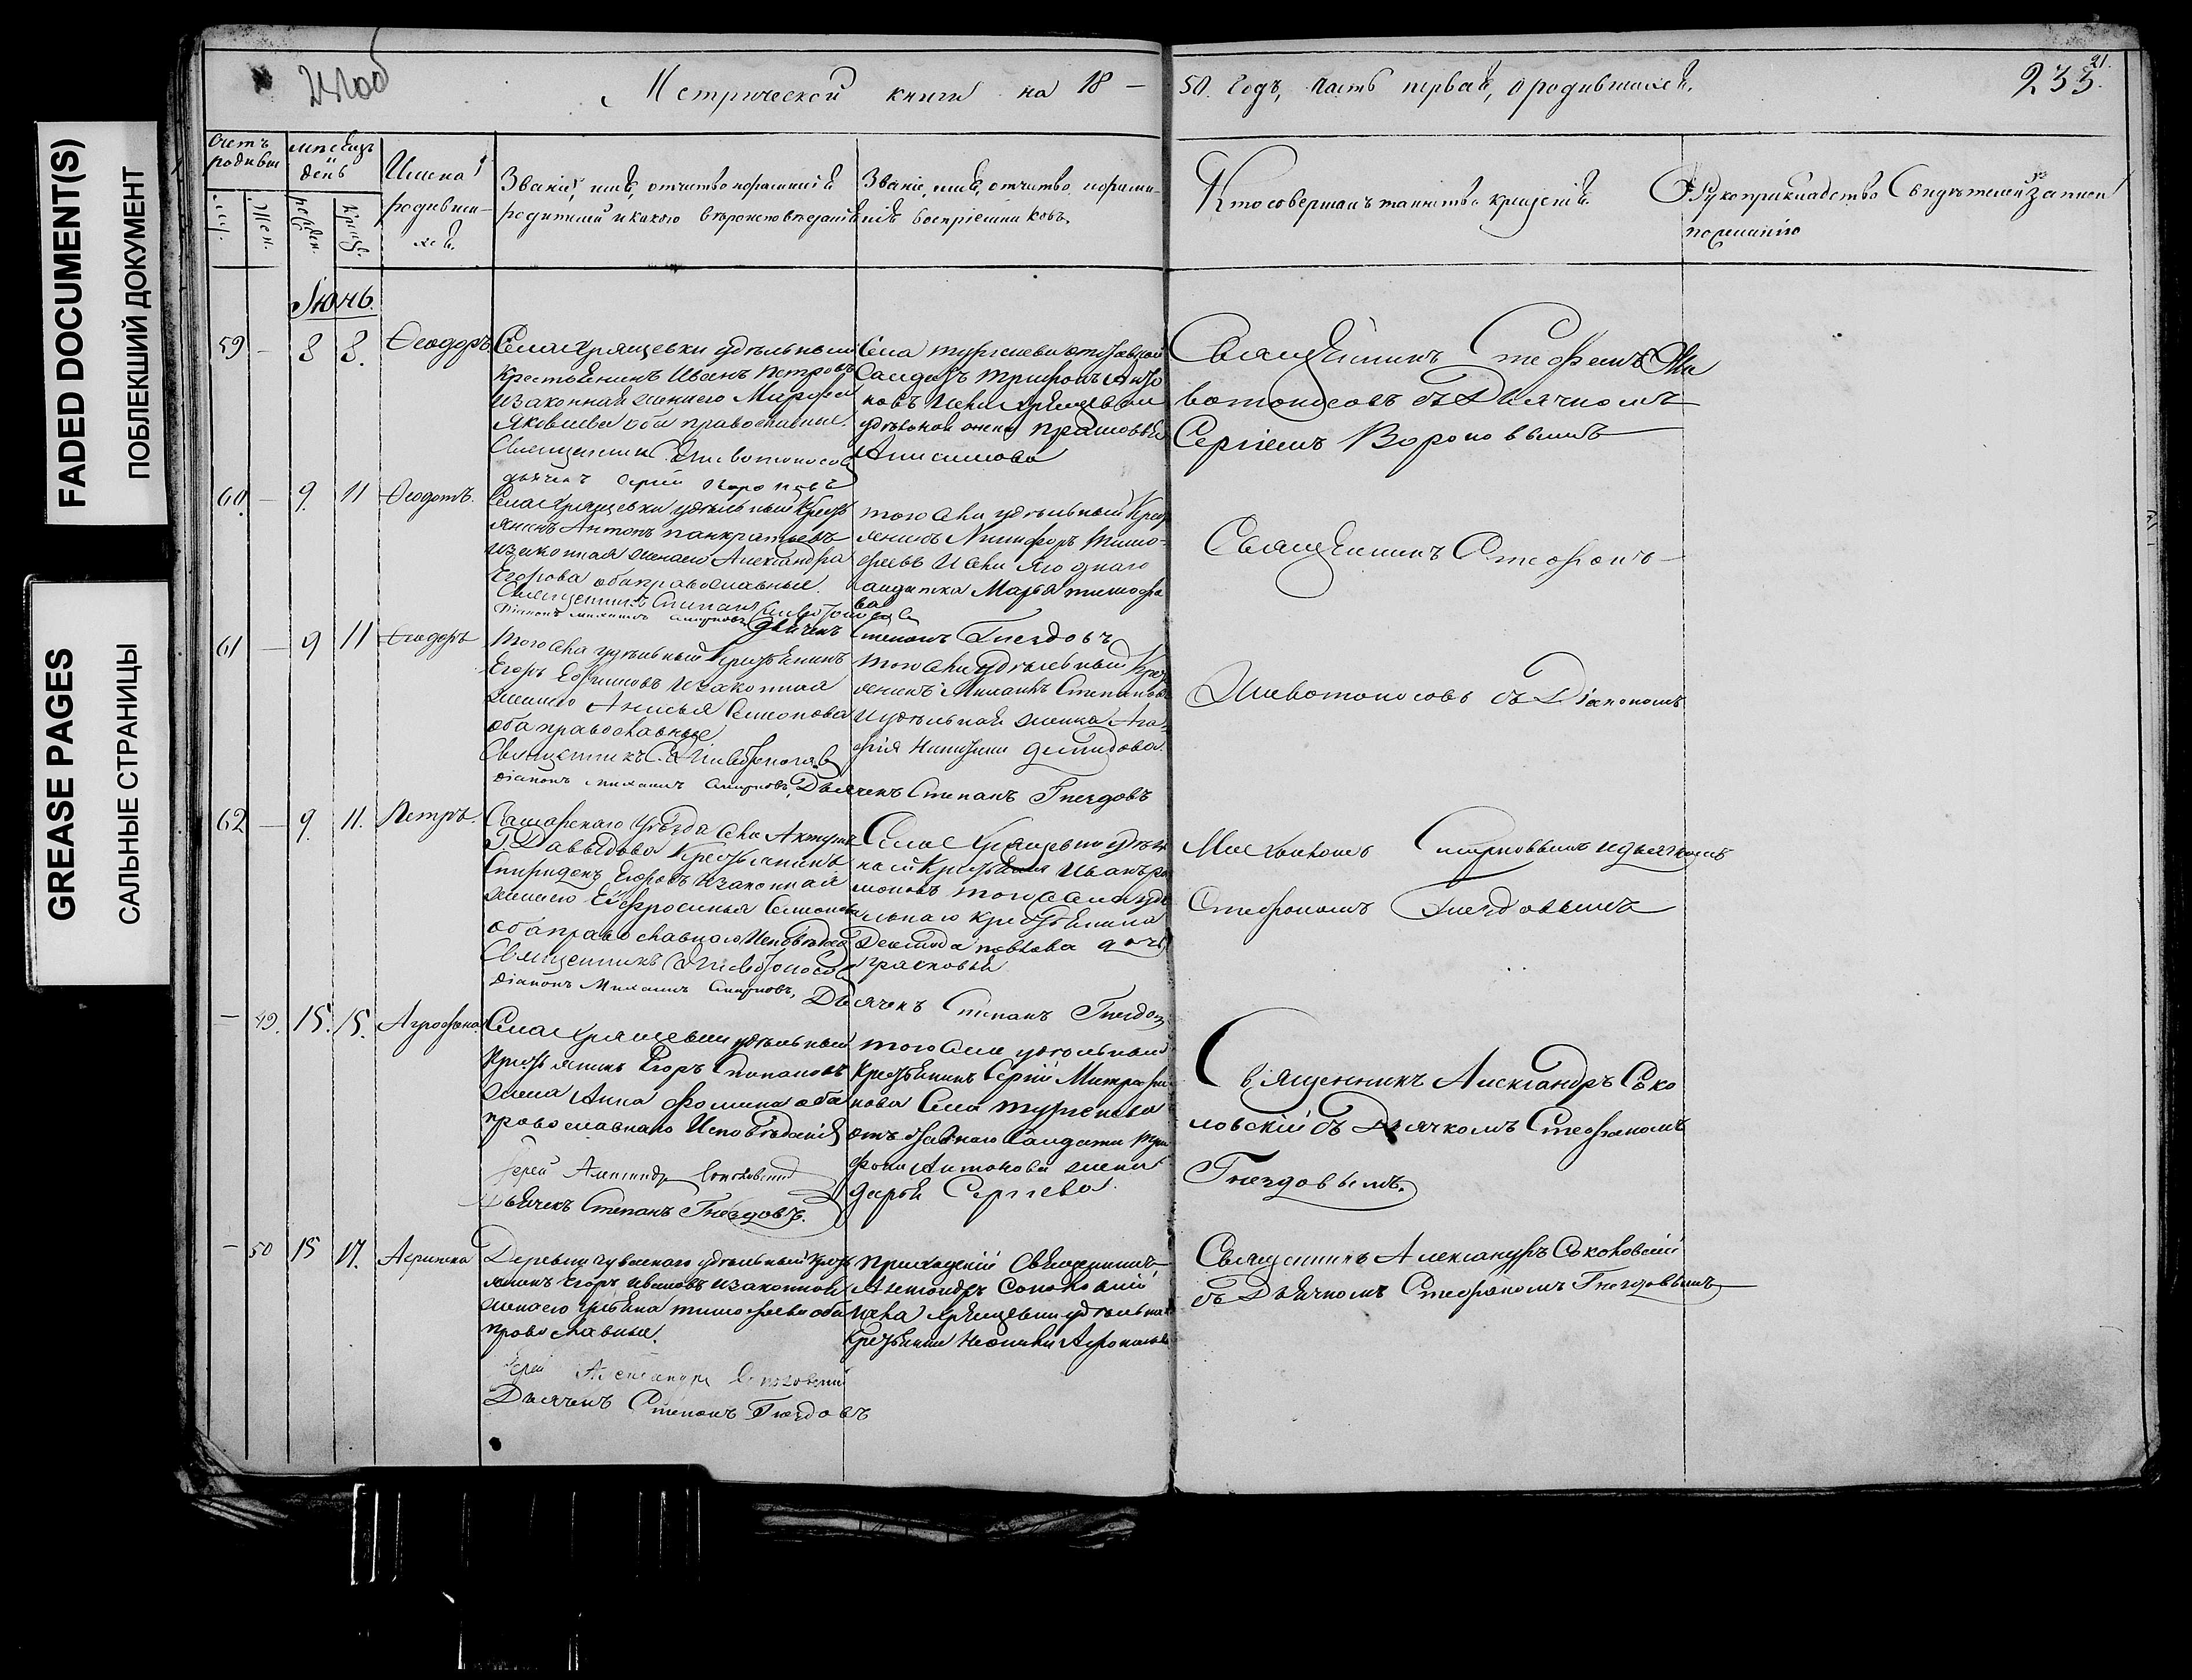 FADED DOCUMENT(S)
ПОБЛЕКШИЙ ДОКУМЕНТ
GREASE PAGES
САЛЬНЫЕ СТРАНИЦЫ
Метрической книги на 18 — 50. годъ, часть первая, о родившихся.
233.
21.
Счетъ родивш
муж.
Жен.
мѣсяцъ и день
рожден.
крещ.
Имена родивши-хся.
Званіе, имя, отчество и фамилія
родителей и какого вѣроисповѣданія
Званіе, имя, отчество, и фами-
лія воспріемниковъ
Кто совершалъ таинство крещенія
Рукоприкладство Свидѣтелей записи
по желанію
Іюнь.
59 — 8 8. Ѳеодоръ
Села Хрящевки удѣльный
крестьянинъ Иванъ Петровъ
и законная жена его Марфа
Яковлева оба православные.
Священникъ Животоносов
дьячекъ Сергей Вороновъ
Села Тургенева отставной
Солдатъ Трифонъ Анто
новъ и села Хрящевки
удѣльная Прасковья
Анисимова
Священникъ Стефанъ Жи
вотоносовъ съ Дьячкомъ
Сергіемъ Вороновымъ
60. — 9. 11 Ѳеодотъ.
Села Хрящевки удѣльный крест
янинъ Антонъ Панкратьевъ
и законная жена его Александра
Егорова оба православные.
Священникъ Степанъ Животоносов
Діаконъ Михаилъ Смирновъ Дьячекъ Степанъ Гнездовъ
того села удѣльный Крест
янинъ Никифоръ Тимо-
феевъ и села Ягоднаго
солдатка Марья Тимофе
ва
Священникъ Стефанъ
61 — 9 11 Ѳеодоръ
того села удѣльный крестьянинъ
Егоръ Ефимовъ и законная
жена его Анисья Семенова
оба православные
Священникъ С. Животоносов
Діаконъ Михаилъ Смирновъ, Дьячекъ Степанъ Гнездовъ
того села удѣльный Крест
янинъ Михаилъ Степановъ
и удѣльная
Демидова.
Животоносовъ съ Діакономъ
62 — 9. 11. Петръ.
Самарскаго уѣзда села
Г. Давыдова Крестьянинъ
Спиридонъ Егоровъ и законная
жена его Евфросинья Семенова
оба православнаго Исповѣда
Священникъ С. Животоносов
Діаконъ Михаилъ Смирновъ, Дьячекъ Степанъ Гнездов
Села Хрящевки удѣль
ный Крестьянинъ Иванъ
того села удѣ
льнаго крестьянина
дочь
Прасковья
Михаиломъ Смирновымъ и дьячкомъ
Стефаномъ Гнездовымъ
— 49. 15. 15. Агрофена
Села Хрящевки удѣльный
Крестьянинъ Егоръ Степановъ
жена Анна Фомина оба
православнаго Исповѣданія
Іерей Александръ Соколовскій
Дьячекъ Степанъ Гнездовъ.
того села удѣльный
Крестьянинъ Сергій Митрофа
нова Села Тургенева
отставнаго Солдата Три
фона Антонова жена
Дарья Сергіева.
Священникъ Александръ Соко
ловскій съ Дьячкомъ Стефаномъ
Гнездовымъ.
— 50 15 17. Агрипена
Деревни удѣльный крест
янинъ Егоръ Ивановъ и законная
жена его Ульяна Тимофеева оба
православные.
Іерей Александръ Соколовскій
Дьячекъ Степанъ Гнездовъ
Приходскій Священникъ
Александръ Соколовскій
и села Хрящевки удѣльная
Священникъ Александръ Соколовскій
съ Дьячкомъ Стефаномъ Гнездовымъ